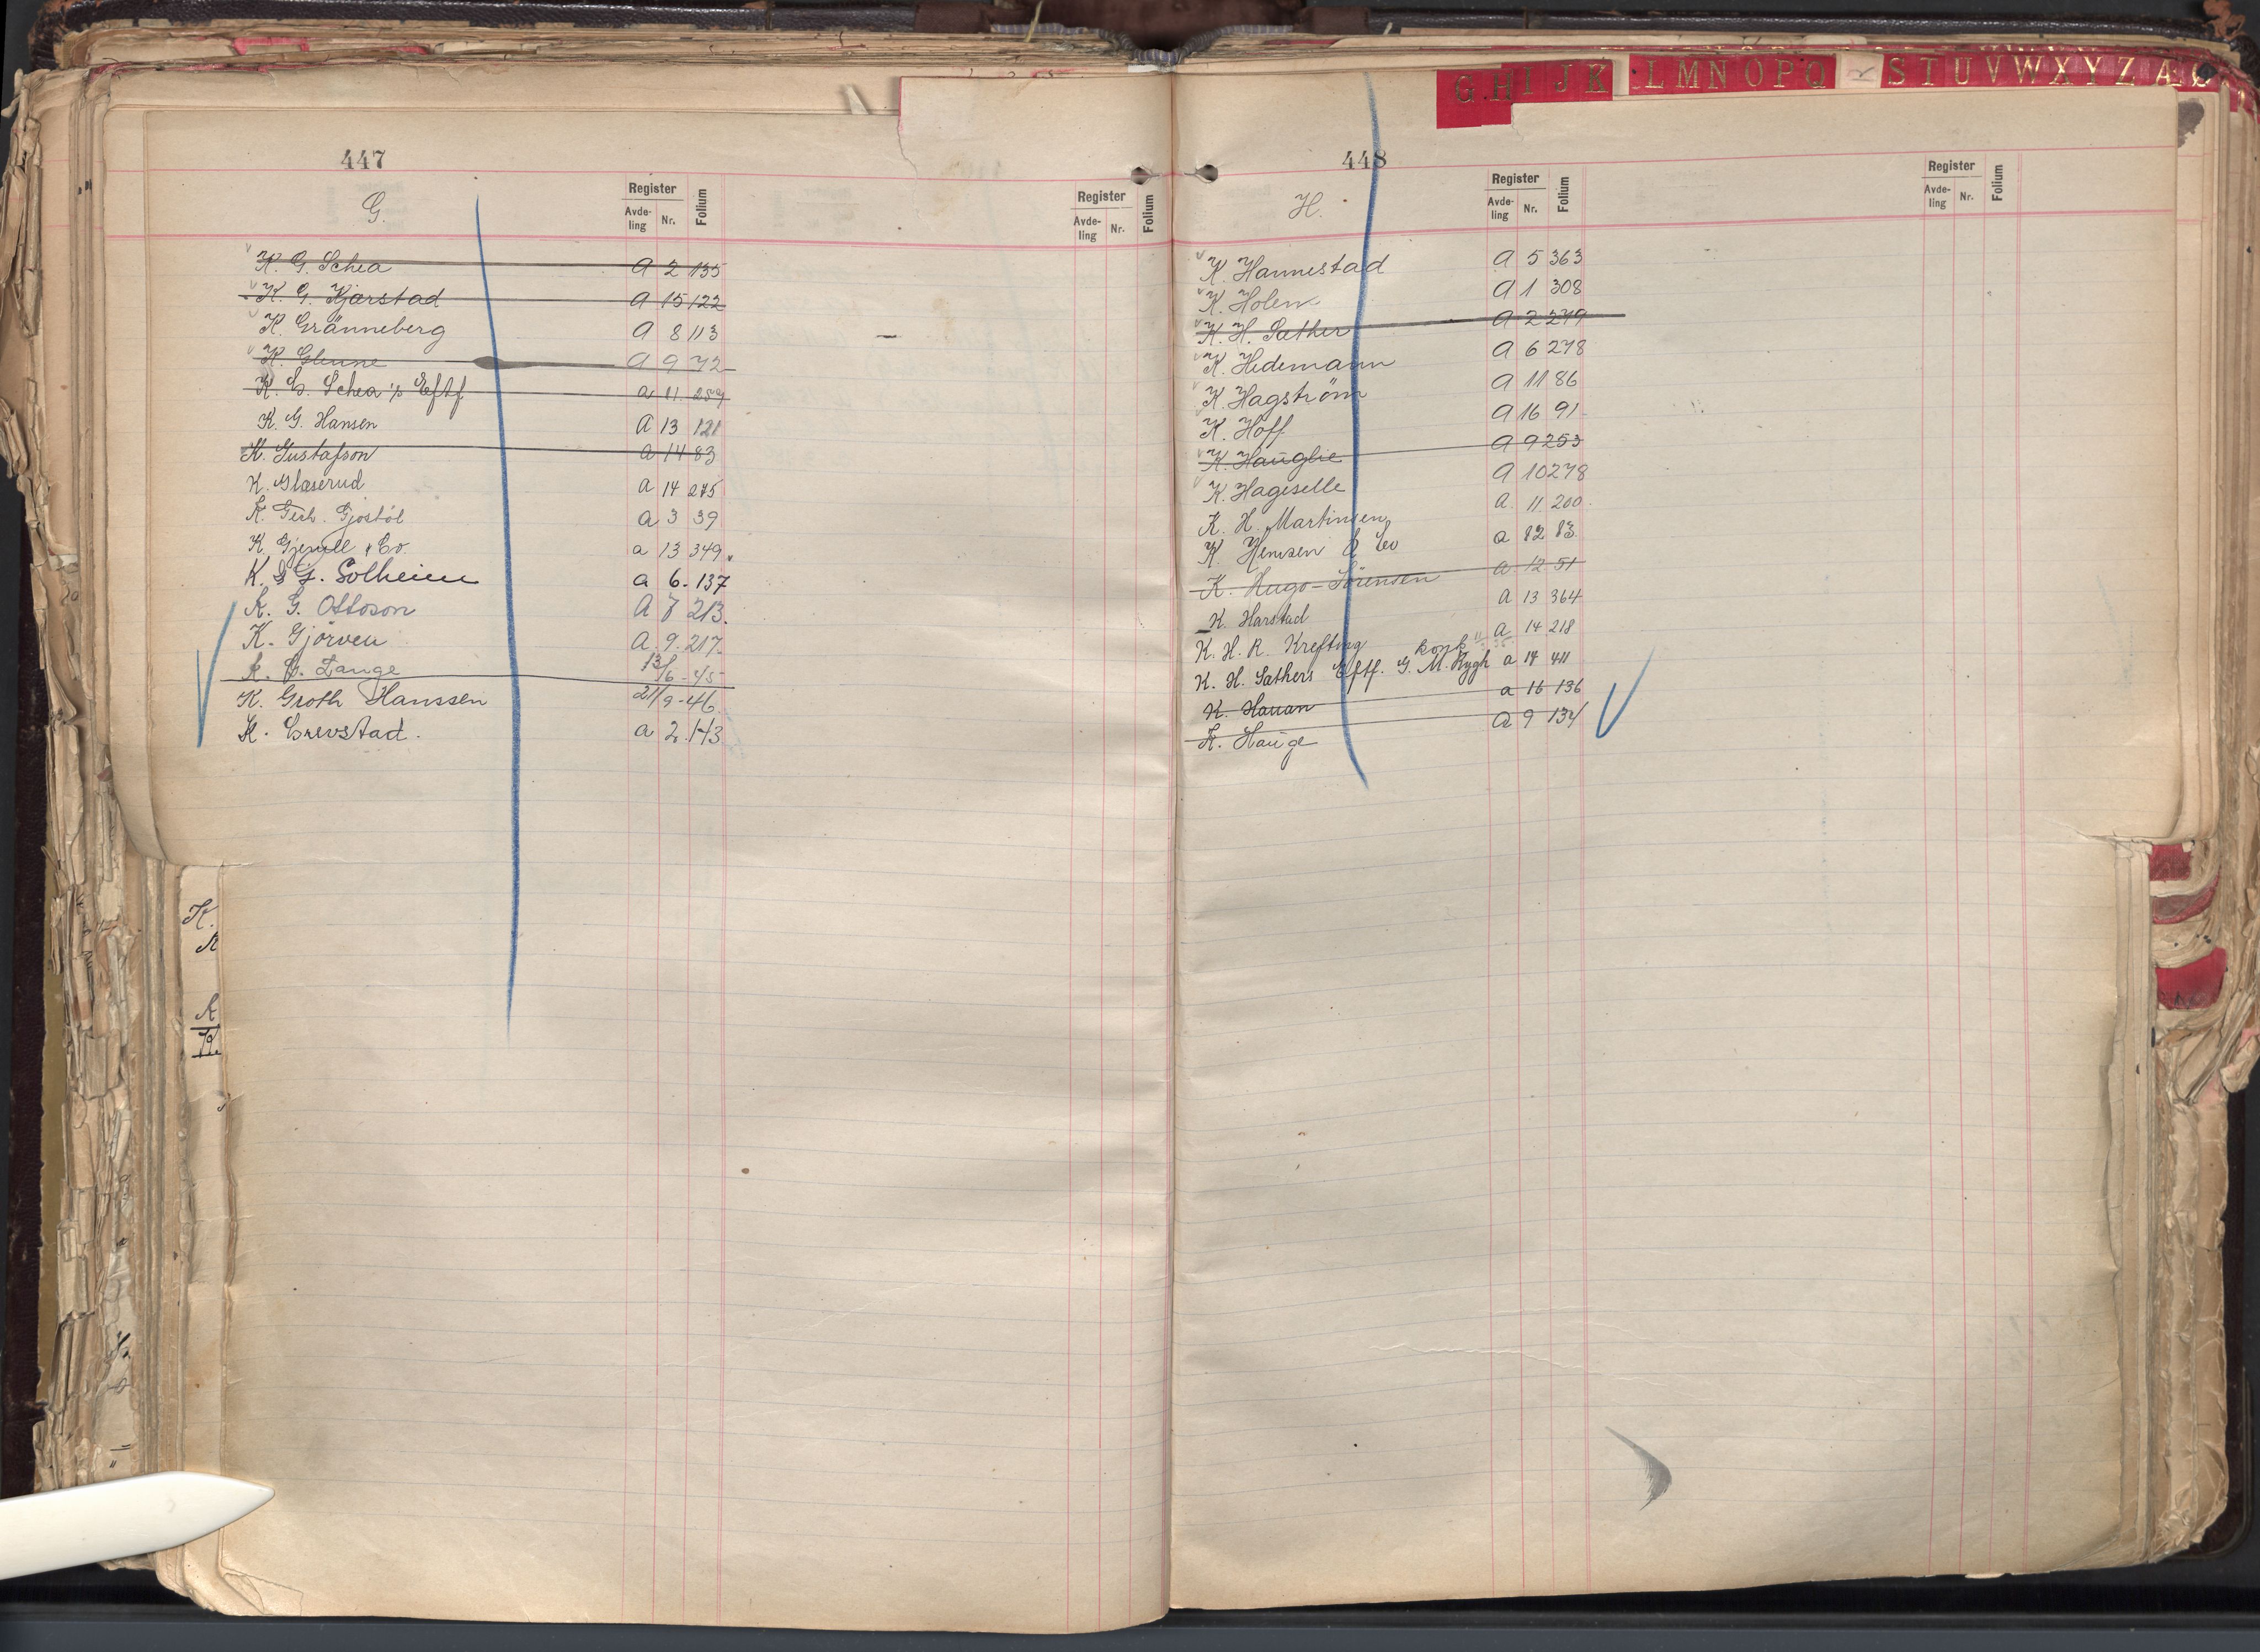 G H I J K L M N O P Q S T U V W X Y Z Æ Ø
447
G.
Register
Avde-
ling
Nr.
Folium
Register
Avde-
ling
Nr.
Folium
K. G. Schea A 2 135
K. G. Kjærstad A 15 122
K. Gränneberg A 8 113
K. Glenne A 9 72
K. G. Schea's Eftf a 11 259
K. G. Hansen A 13 121
K. Gustafson a 14 83
K. Glaserud a 14 275
K. Gerh. Gjostøl a 3 39
K. Gjerull & Co. a 13 349
K. G. Solheim a 6 - 137
K. G. Ottoson A 7 213.
K. Gjörven A. 9. 217.
K. G. Lange 13/6 - 45
K. Groth Hanssen 21/9 - 46
K. Grevstad. a 2. 143
K.
K
K
K.
448
H.
Register
Avde-
ling
Nr.
Folium
Register
Avde-
ling
Nr.
Folium
K. Hannestad A 5 363
K. Holen A 1 308
K. H. Sæther A 2 279
K. Hedemann A 6 278
K. Hagström A 11 86
K. Hoff A 16 91
K. Hauglie A 9 253
K. Hageselle A 10 278
K. H. Martinsen A. 11. 200.
K. Hemsen & Co a 12 13
K. Hugo-Sørensen a. 12 51
K. Harstad A 13 364
K. H. R. Krefting A 14 218
konk
K. H. Sathers Eftf. G. M. Rygh a 14 411
K. Hauan a 16 136
K. Hauge A 9 134